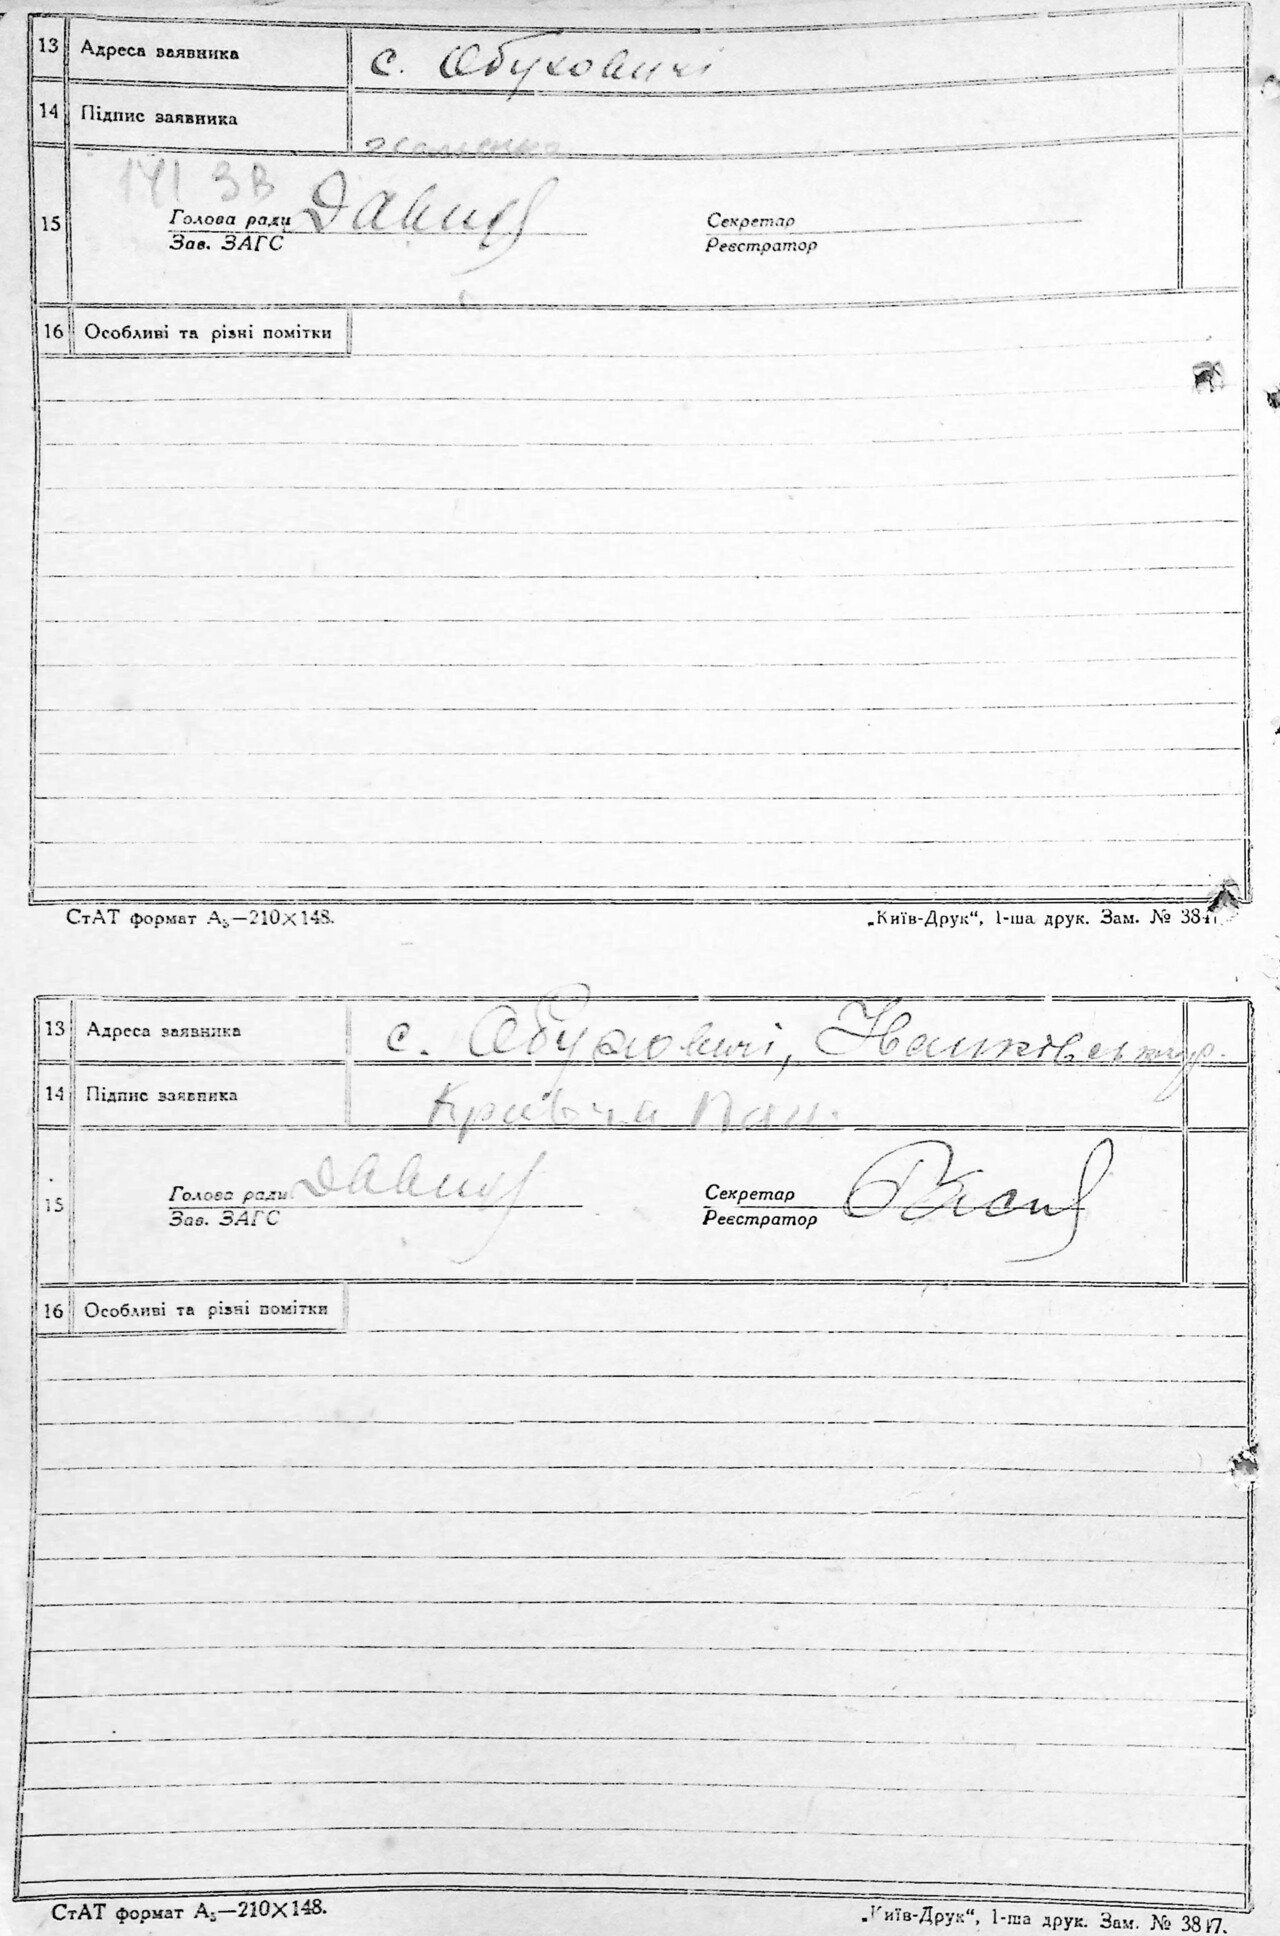 13 Адреса заявника с. Обуховичі
14 Підпис заявника
141 ЗВ
15 Голова ради Секретар
Зав. ЗАГС Реєстратор
16 Особливі та різні помітки
СтАТ формат А₅—210×148. „Київ-Друк“, 1-ша друк. Зам. №
13 Адреса заявника с. Обуховичі,
14 Підпис заявника
15 Голова ради Секретар
Зав. ЗАГС Реєстратор
16 Особливі та різні помітки
СтАТ формат А₅—210×148. „Київ-Друк“, 1-ша друк. Зам. № 3817.